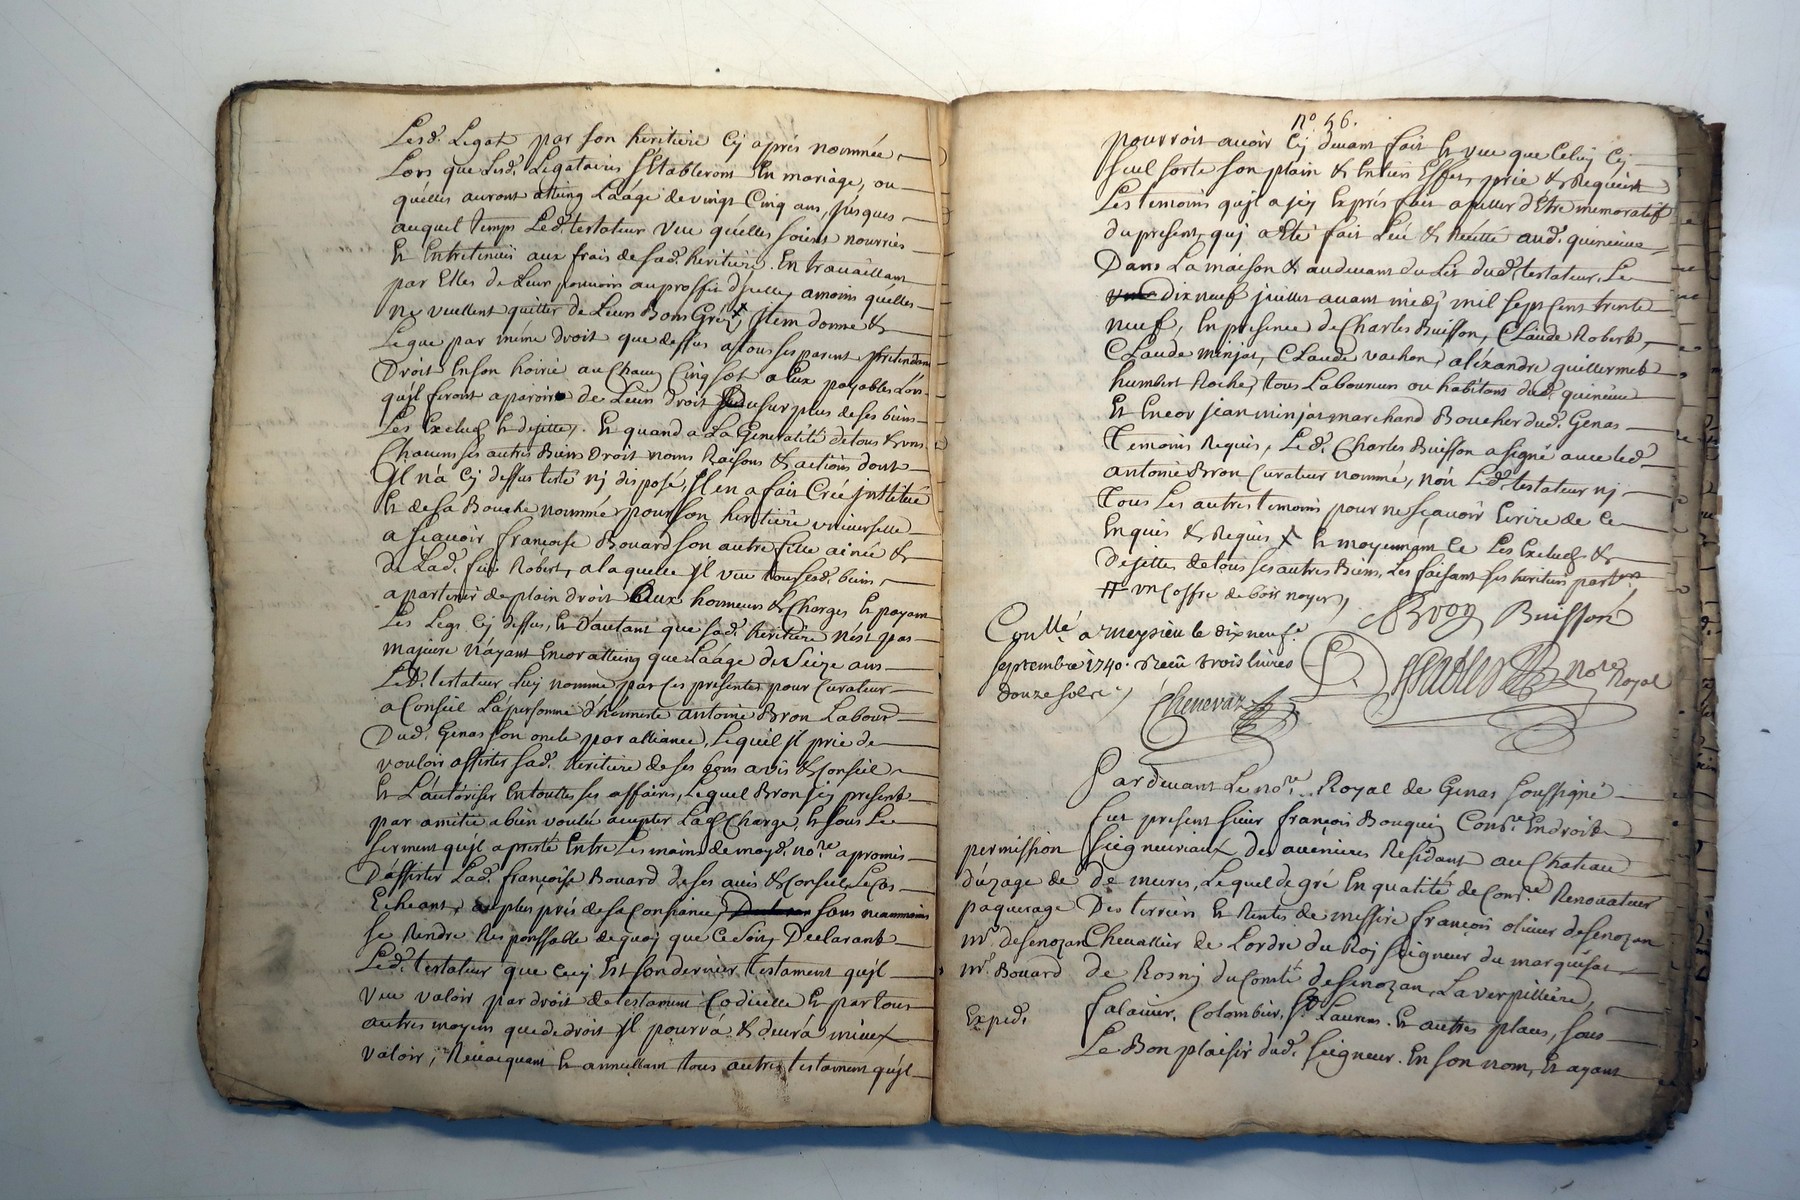 Lesd. Legat par son heritiere Cy aprés nommée,
Lors que Lesd. Legataires S'Etableront En mariage, ou
qu'elles auront atteing Laâge de vingt Cinq ans, Jusques
auquel temps Led. testateur veu qu'elles soient nourries
Et Entretenues aux frais de sad. heritiere. En travaillant
par Elles de Leur pouvoir au proffit d'jcelle, amoins qu'elles
ne veuillent quitter de Leurs Bons Gré, Jtem donne &
Legue par méme droit que dessus a tous ses parent pretendant
Droit En son hoirie au Chacun Cinq sols a Eux payables Lors
qu'jl feront aparoir de Leur droit du surplus de ses biens
Les Exclud Et dejette. Et quand a La Generalité de tous & uns
Chacuns ses autres Biens Droit noms Raisons & actions dont
Jl n'á Cy dessus testé nj disposé, Jl en a fait Créé jnstitué
Et de sa Bouche nommé pour son heritiere universelle
a sçavoir françoise Bouard son autre fille ainée &
de Lad. feue Robert, a laquelle Jl veu tous sesd. biens
apartenir de plain droit Aux honneurs & Charges Et payant
Les Legs Cy dessus, Et d'autant que sad. heritiere n'est pas
majeure n'ayant Encor atteing que Laâge de Seize ans
Led. testateur luy nomme par Ces presentes pour Curateur
a Conseil La personne d'honneste antoine Bron Labour.
Dud. Genas son oncle par alliance, Lequel Jl prie de
vouloir assister sad. heritiere de ses bons avis & Conseil
Et L'autoriser En touttes ses affaires, Lequel Bron jcy present
par amitié a bien voulu accepter Lad. Charge, Et sous Le
serment qu'jl a presté Entre Les mains de moyd. no.re a promis
D'assister Lad. françoise Bouard de ses avis & Conseil Le Cas
Echeant, au plus prés de sa Consiance, sans neanmoins
se Rendre Responssable de quoy que Ce soit, Declarant
Led. testateur que Cecy Est son dernier testament qu'jl
veu valoir par droit de testament Codicille Et par tous
autres moyens que de droit Jl pourrá & devrá mieux
valoir, Revoequant Et annullant tous autres testament qu'jl
n.o 56.
pourroit avoir Cy devant fait Et veu que Celuy Cy
seul sorte son plain & Entier Effet, prie & Requiert
Les temoins qu'jl a jcy Exprés fait apeller d'Etre memoratif
du present, quj a Eté fait Leu & Récitté aud. quincieue
Dans La maison & audevant du Lit dud. testateur, Le
dix neuf juillet avant midj mil sept Cent trente
neuf, En presence de Charles Buisson, Claude Robert,
Claude minjat, Claude vachon, aléxandre guillermet
humbert Roche, tous Laboureurs ou habitans dud. quincieue
Et Encor jean minjat marchand Boucher dud. Genas
Temoins Requis, Led. Charles Buisson a signé avec led.
antoine Bron Curateur nommé, nón Led. testateur nj
Tous Les autres temoins pour ne sçavoir Ecrire de Ce
Enquis & Requis X Et moyennant Ce Les Exclud &
Dejettes de tous ses autres Biens, Les faisant ses heritiers part.res
# un Coffre de bois noyer,
Bron Buisson
Con.llé a meysieu le dix neuf.e
septembre 1740. Receu trois livres
douze sols
Chenevaz
no.re Royal
Pardevant Le no.re Royal de Genas soussigné
fut present sieur françois Bouquin Com.re En droits
permission
Seigneuriaux des avenieres Residant au Chateau
d'uzage de
de mures, Lequel de gré En qualité de Com.re Renovateur
paquerage
Des terriers Et Rentes de messire françois olivier desenozan
M.r desenozan
Chevallier de Lordre du Roj Seigneur du marquisat
M.r Bouard
de Rosny du Comté desenozan, La verpilliere,
Exped.
falavier, Colombier, S.t Laurens. Et autres places, sous
Le Bon plaisir dud. seigneur. En son nom, Et ayant